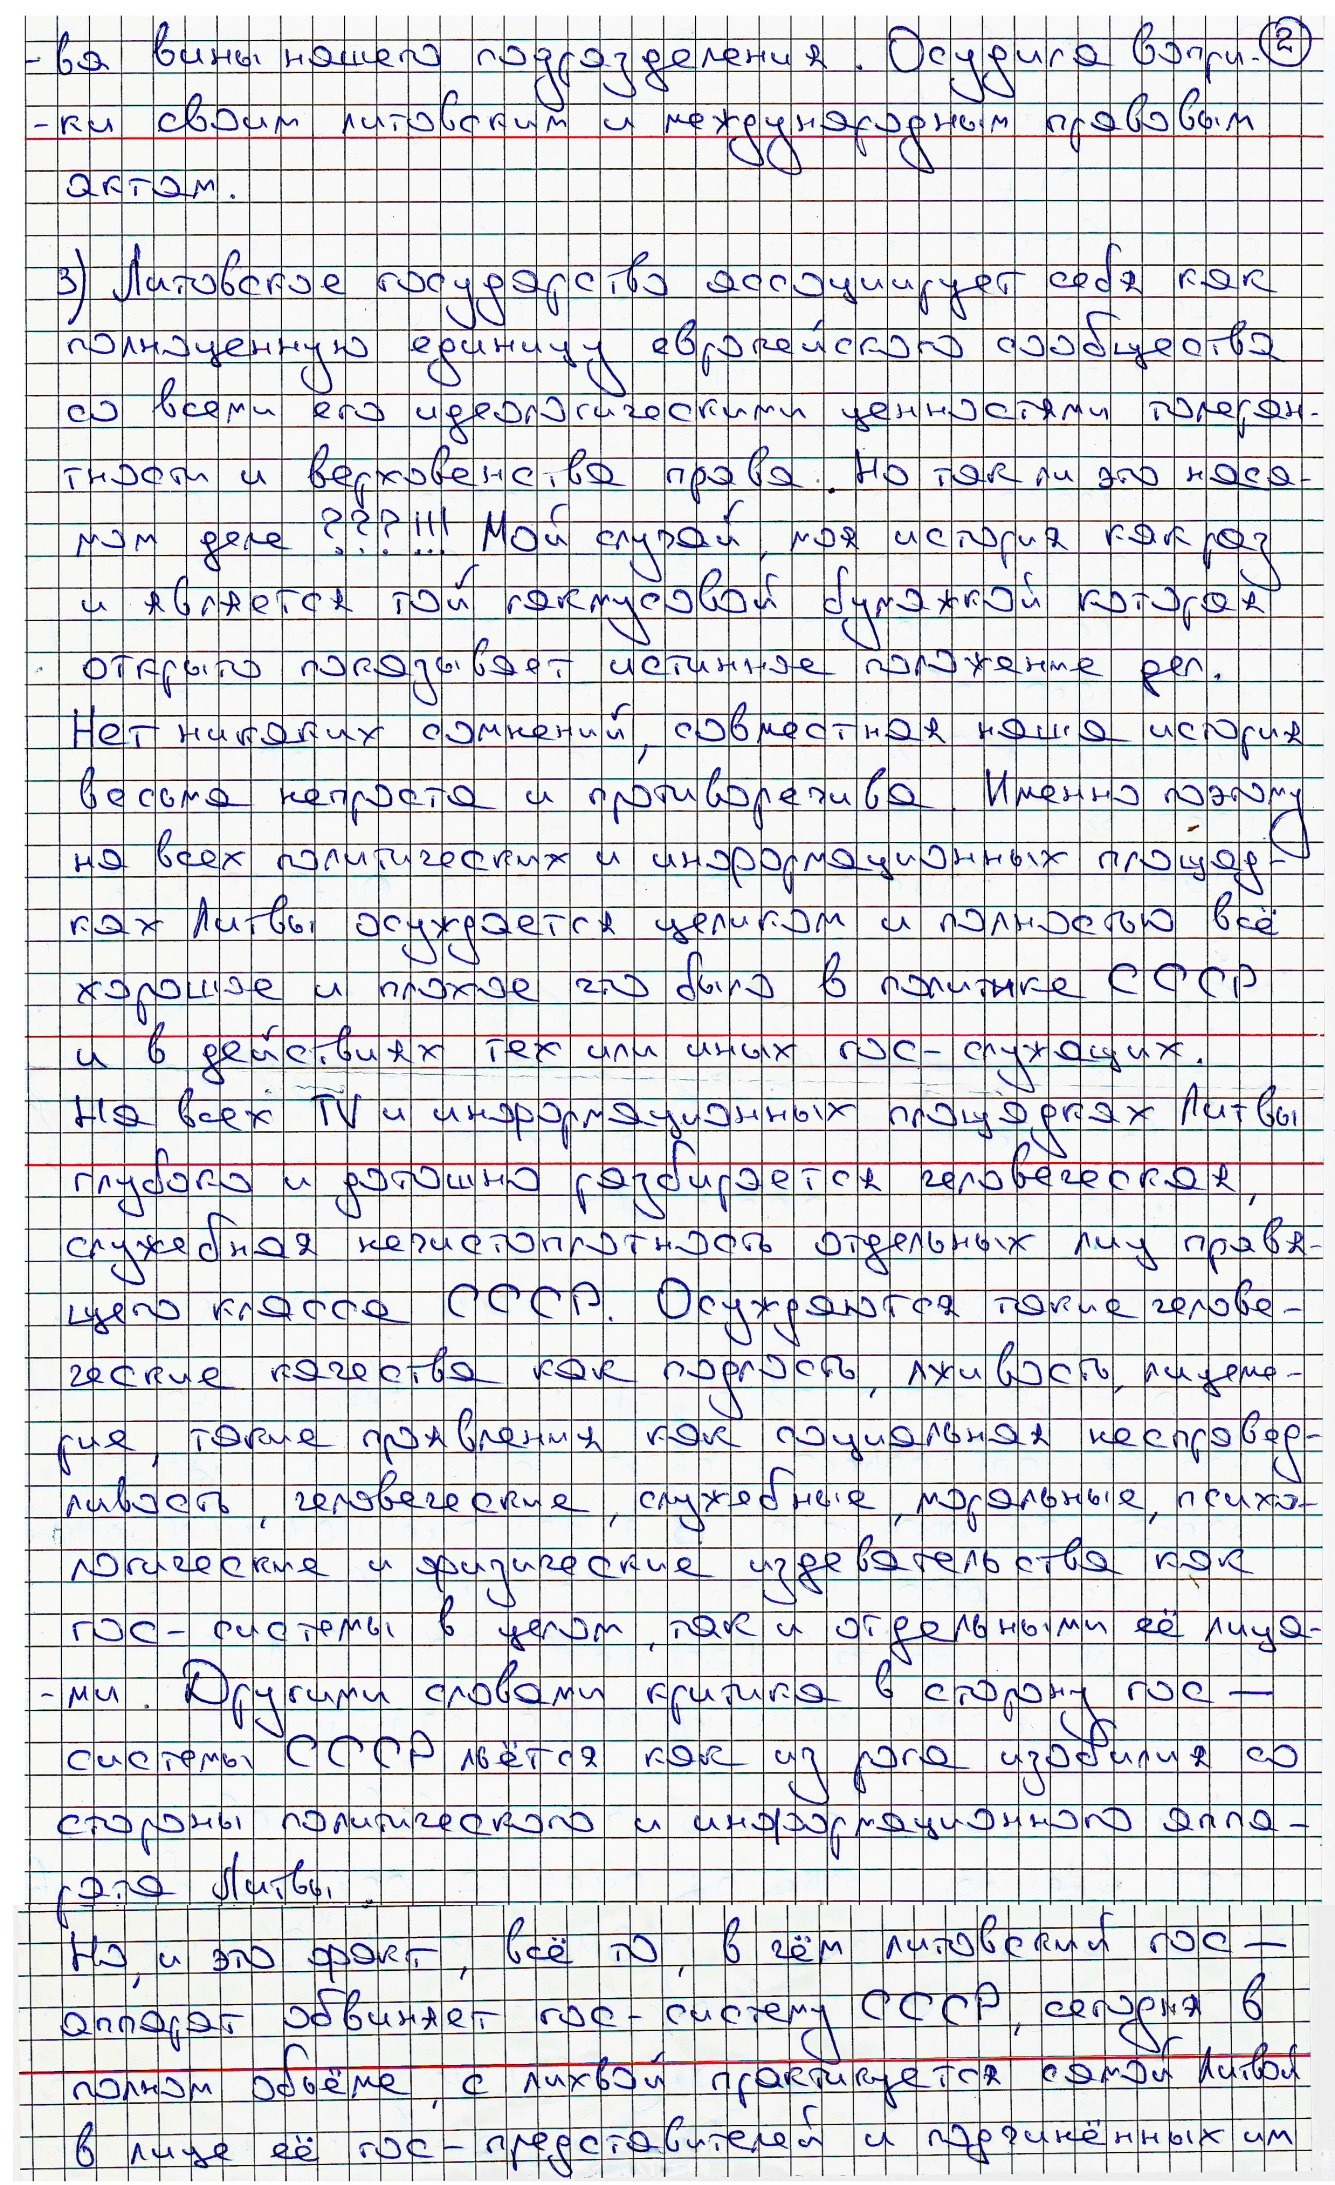 -ва вины нашего подразделения. Осудила вопре- ②
-ки своим литовским и международным правовым
актам.
3) Литовское государство ассоциирует себя как
полноценную единицу европейского сообщества
со всеми его идеологическими ценностями толеран-
тности и верховенства права. Но так ли это на са-
мом деле ???!!! Мой случай, моя история как раз
и является той лакмусовой бумажкой которая
открыто показывает истинное положение дел.
Нет никаких сомнений, совместная наша история
весьма непроста и противоречива. Именно поэтому
на всех политических и информационных площад-
ках Литвы осуждается целиком и полностью всё
хорошое и плохое что было в политике СССР
и в действиях тех или иных гос-служащих.
На всех TV и информационных площадках Литвы
глубоко и дотошно разбирается человеческая,
служебная нечистоплотность отдельных лиц правя-
щего класса СССР. Осуждаются такие челове-
ческие качества как подлость, лживость, лицеме-
рия, такие проявления как социальная несправед-
ливость, человеческие, служебные, моральные, психо-
логические и физические издевательства как
гос-системы в целом, так и отдельными её лица-
-ми. Другими словами критика в сторону гос-
системы СССР льётся как из рога изобилия со
стороны политического и информационного аппа-
рата Литвы.
Но, и это факт, всё то, в чём литовский гос-
аппарат обвиняет гос-систему СССР, сегодня в
полном объёме, с лихвой практикуется самой Литвой
в лице её гос-представителей и подчинённых им